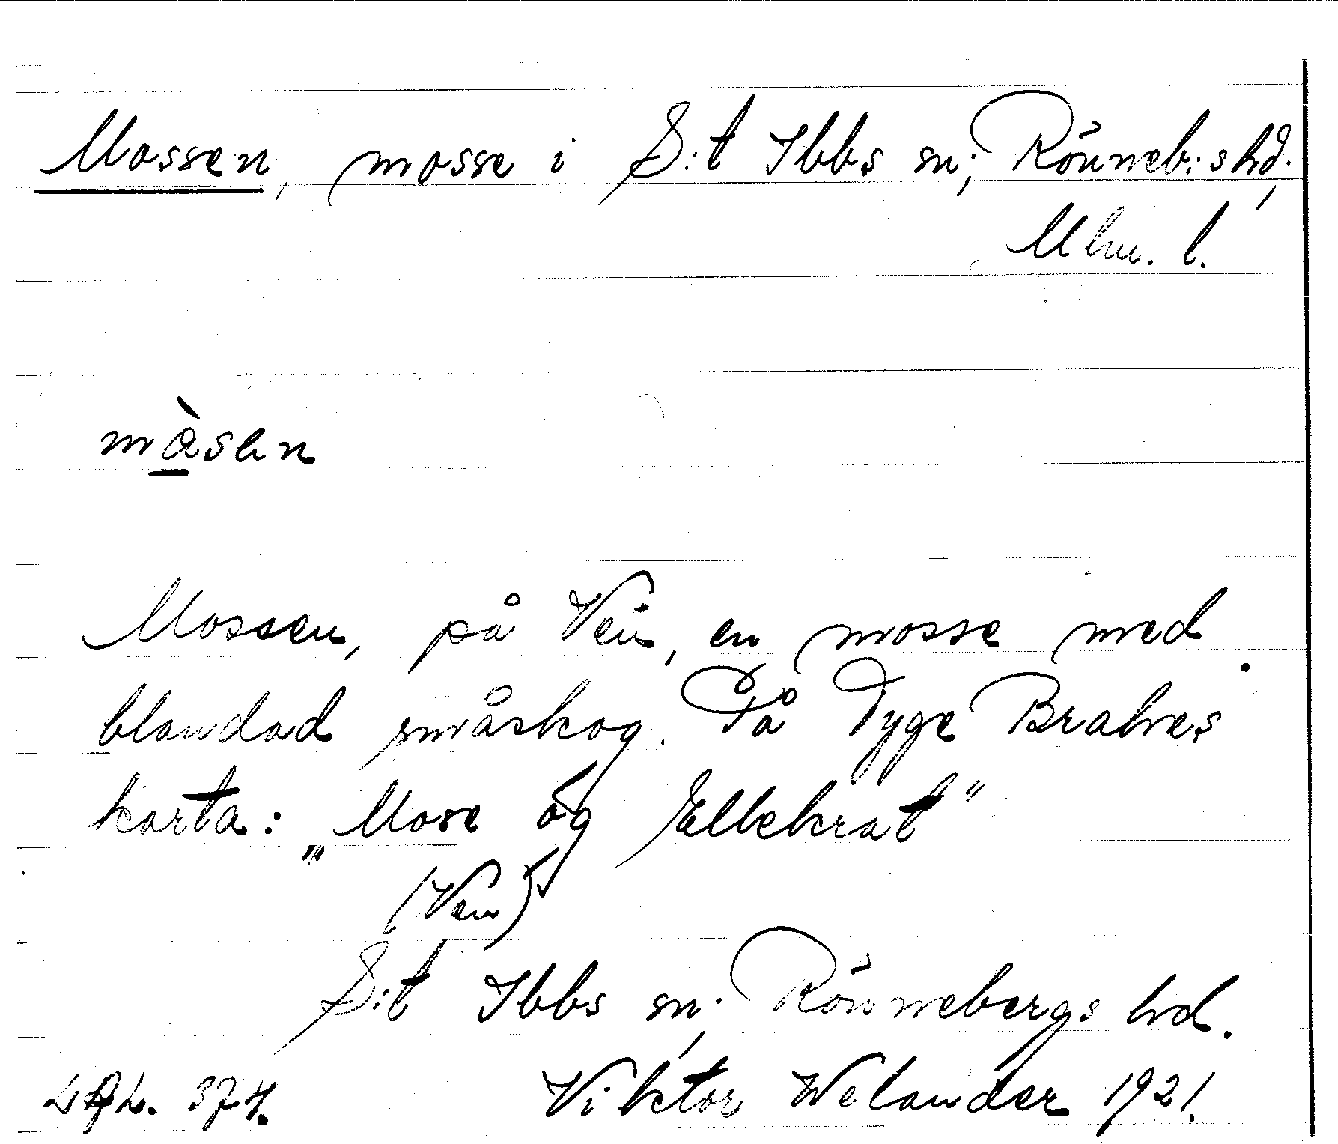 Mossen, mosse i S:t Ibbs sn; Rönneb:s hd,
Mlm. l.
mòsen
Mossen, på Ven, en mosse med
blandad småskog. På Tyge Brahes
karta: „Mose og Ellekrat"
(Ven)
S:t Ibbs sn; Rönnebergs hd.
Viktor Welander 1921.